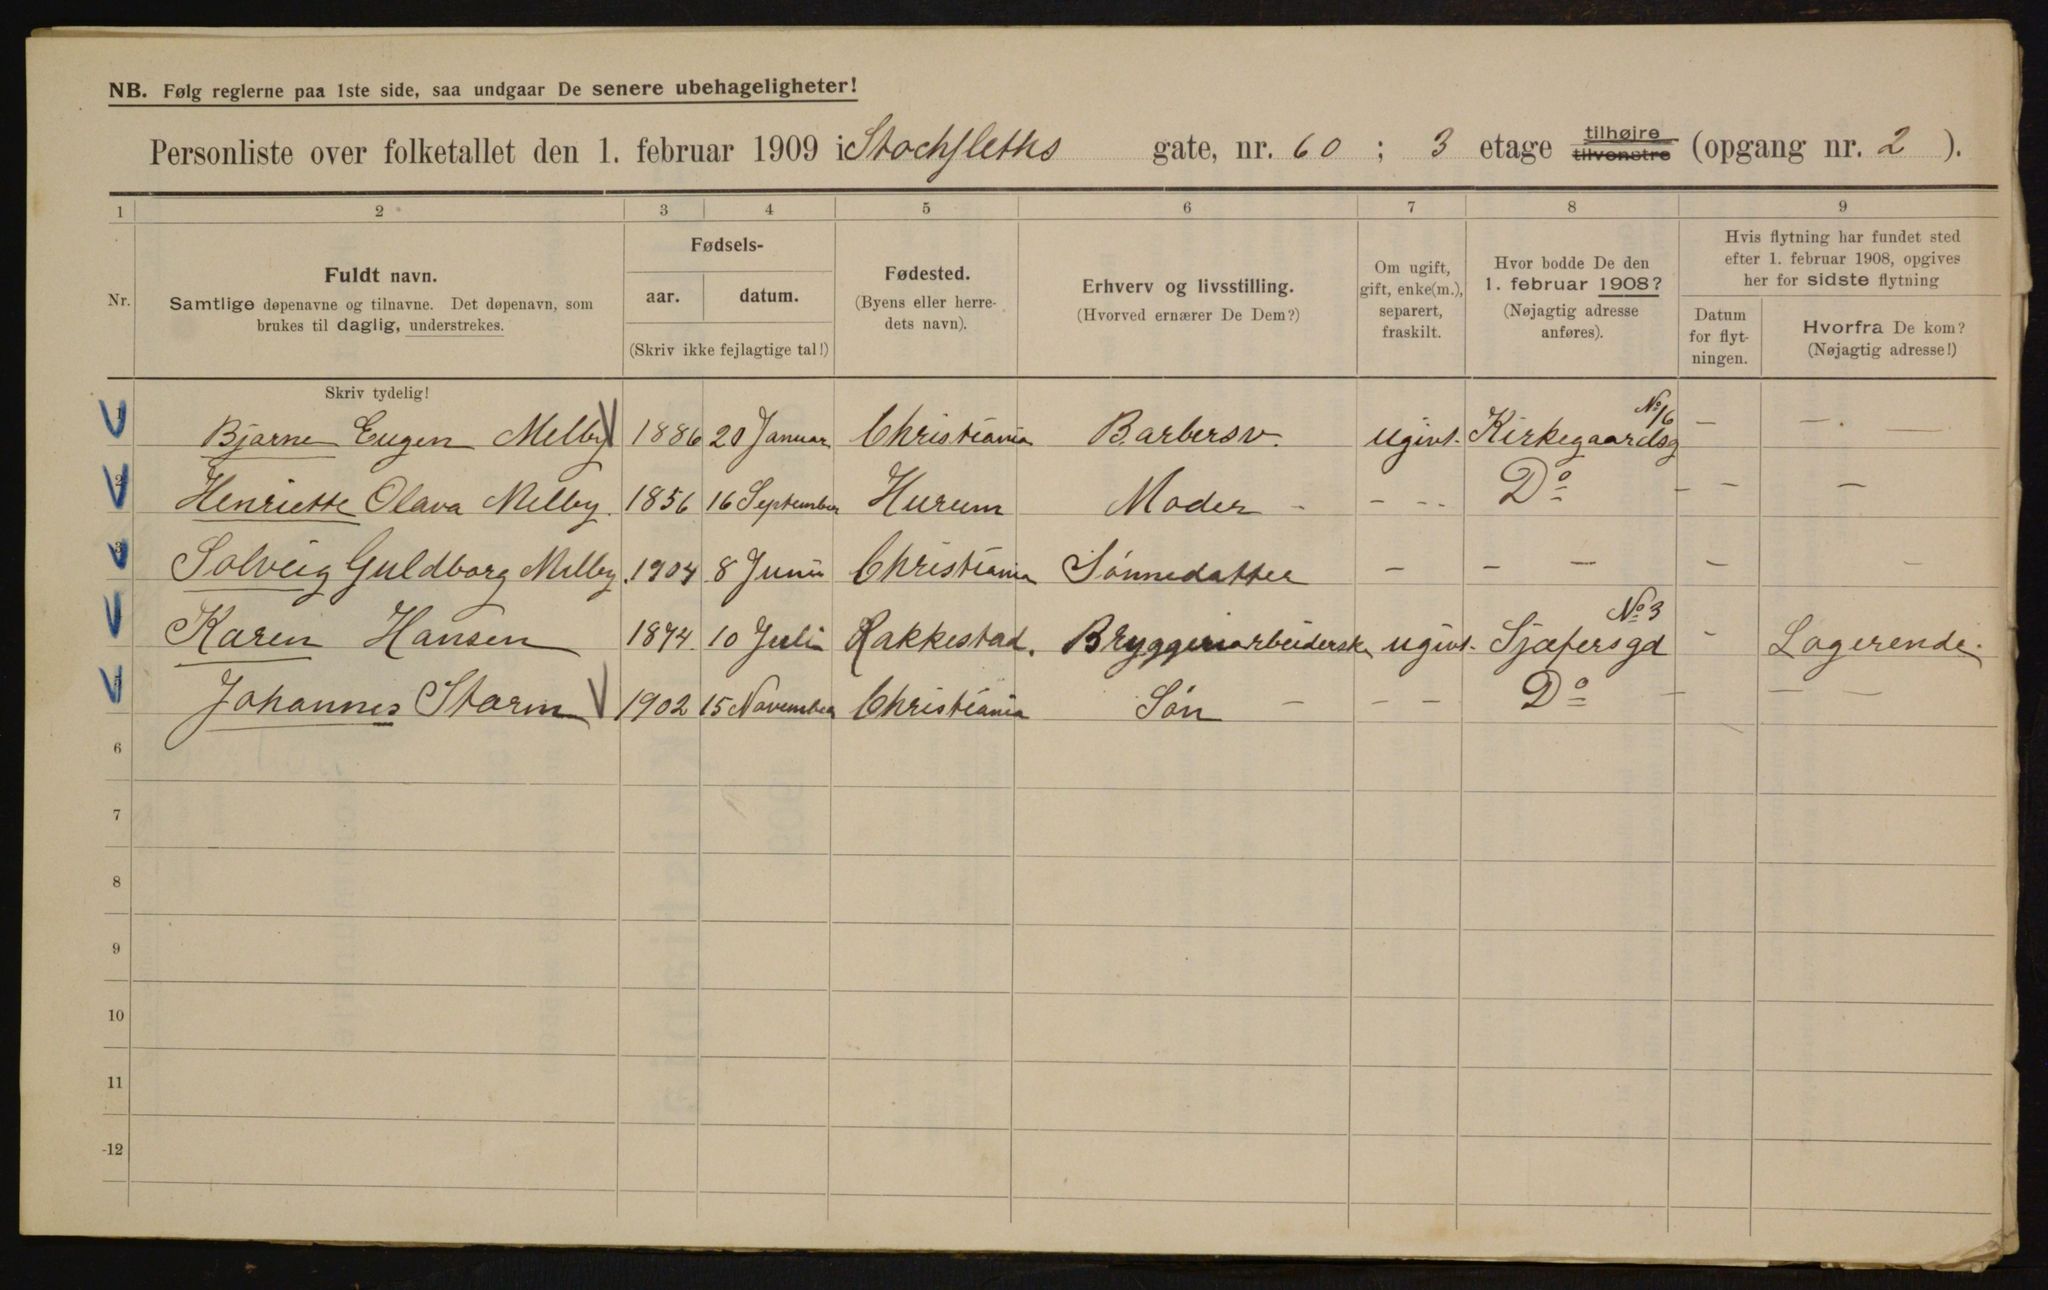 NB. Følg reglerne paa 1ste side, saa undgaar De senere ubehageligheter!
Personliste over folketallet den 1. februar 1909 i Stochfleths gate, nr. 60 ; 3 etage tilhøjre tilvenstre (opgang nr. 2 ).
1 2 3 4 5 6 7 8 9
Nr.
Fuldt navn.
Samtlige døpenavne og tilnavne. Det døpenavn, som
brukes til daglig, understrekes.
Fødsels-
aar. datum.
(Skriv ikke fejlagtige tal!)
Fødested.
(Byens eller herre-
dets navn).
Erhverv og livsstilling.
(Hvorved ernærer De Dem?)
Om ugift,
gift, enke(m.),
separert,
fraskilt.
Hvor bodde De den
1. februar 1908?
(Nøjagtig adresse
anføres).
Hvis flytning har fundet sted
efter 1. februar 1908, opgives
her for sidste flytning
Datum
for flyt-
ningen.
Hvorfra De kom?
(Nøjagtig adresse!)
Skriv tydelig!
1 Bjarne Eugen Melby 1886 20 Januar Christiania Barbersv. ugivt. Kirkegaardsg No 16 — — —
2 Henriette Olava Melby. 1856 16 September Hurum Moder - - -- Do - — —
3 Solveig Guldborg Melby. 1904 8 Juni Christiania Sønnedatter — - — — -
4 Karen Hansen 1874. 10 Juli Rakkestad. Bryggeriarbeiderske ugivt. Sjøfersgd No 3 - Logerende.
5 Johannes Storm 1902 15 November Christiania Søn — — — Do — — —
6
7
8
9
10
11
12